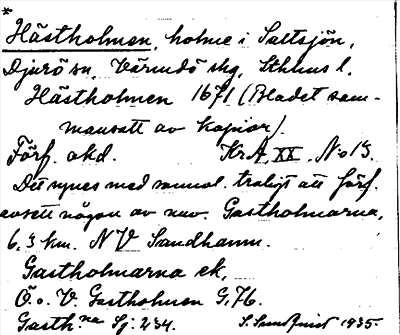 *
Hästholmen, holme i Saltsjön,
Djurö sn, Värmdö skg, Sthlms l.
Hästholmen 1671 (Bladet sam-
mansatt av kopior).
Förf. okd. KrA XX, No 13.
Det synes med sannol. troligt att förf.
avsett någon av nuv. Gastholmarna,
6,3 km. NV Sandhamn.
Gastholmarna ek.
Ö. o. V. Gastholmen G, 76.
Gasth.na Sj. 234. S. Sundqvist 1935.